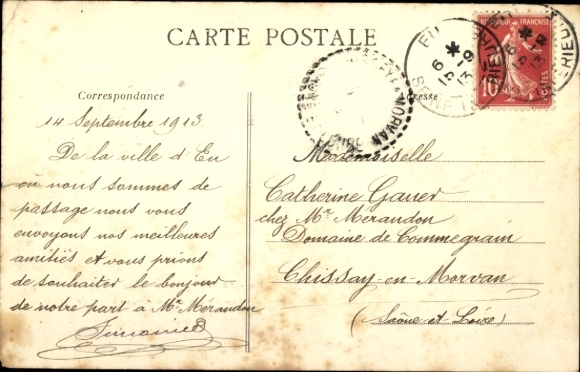 CARTE POSTALE
Correspondance
14 Septembre 1913
De la ville d'Eu
où nous sommes de
passage nous vous
envoyons nos meilleures
amitiés et vous prions
de souhaiter le bonjour
de notre part à Mr Mérandon
Adresse
Mademoiselle
Catherine Gauer
chez Mr Mérandon
Domaine de Commegrain
Chissay-en-Morvan
(Saône-et-Loire)
REPUBLIQUE FRANÇAISE
10
POSTES
EU
6 *
15 -9
13
MORVAN